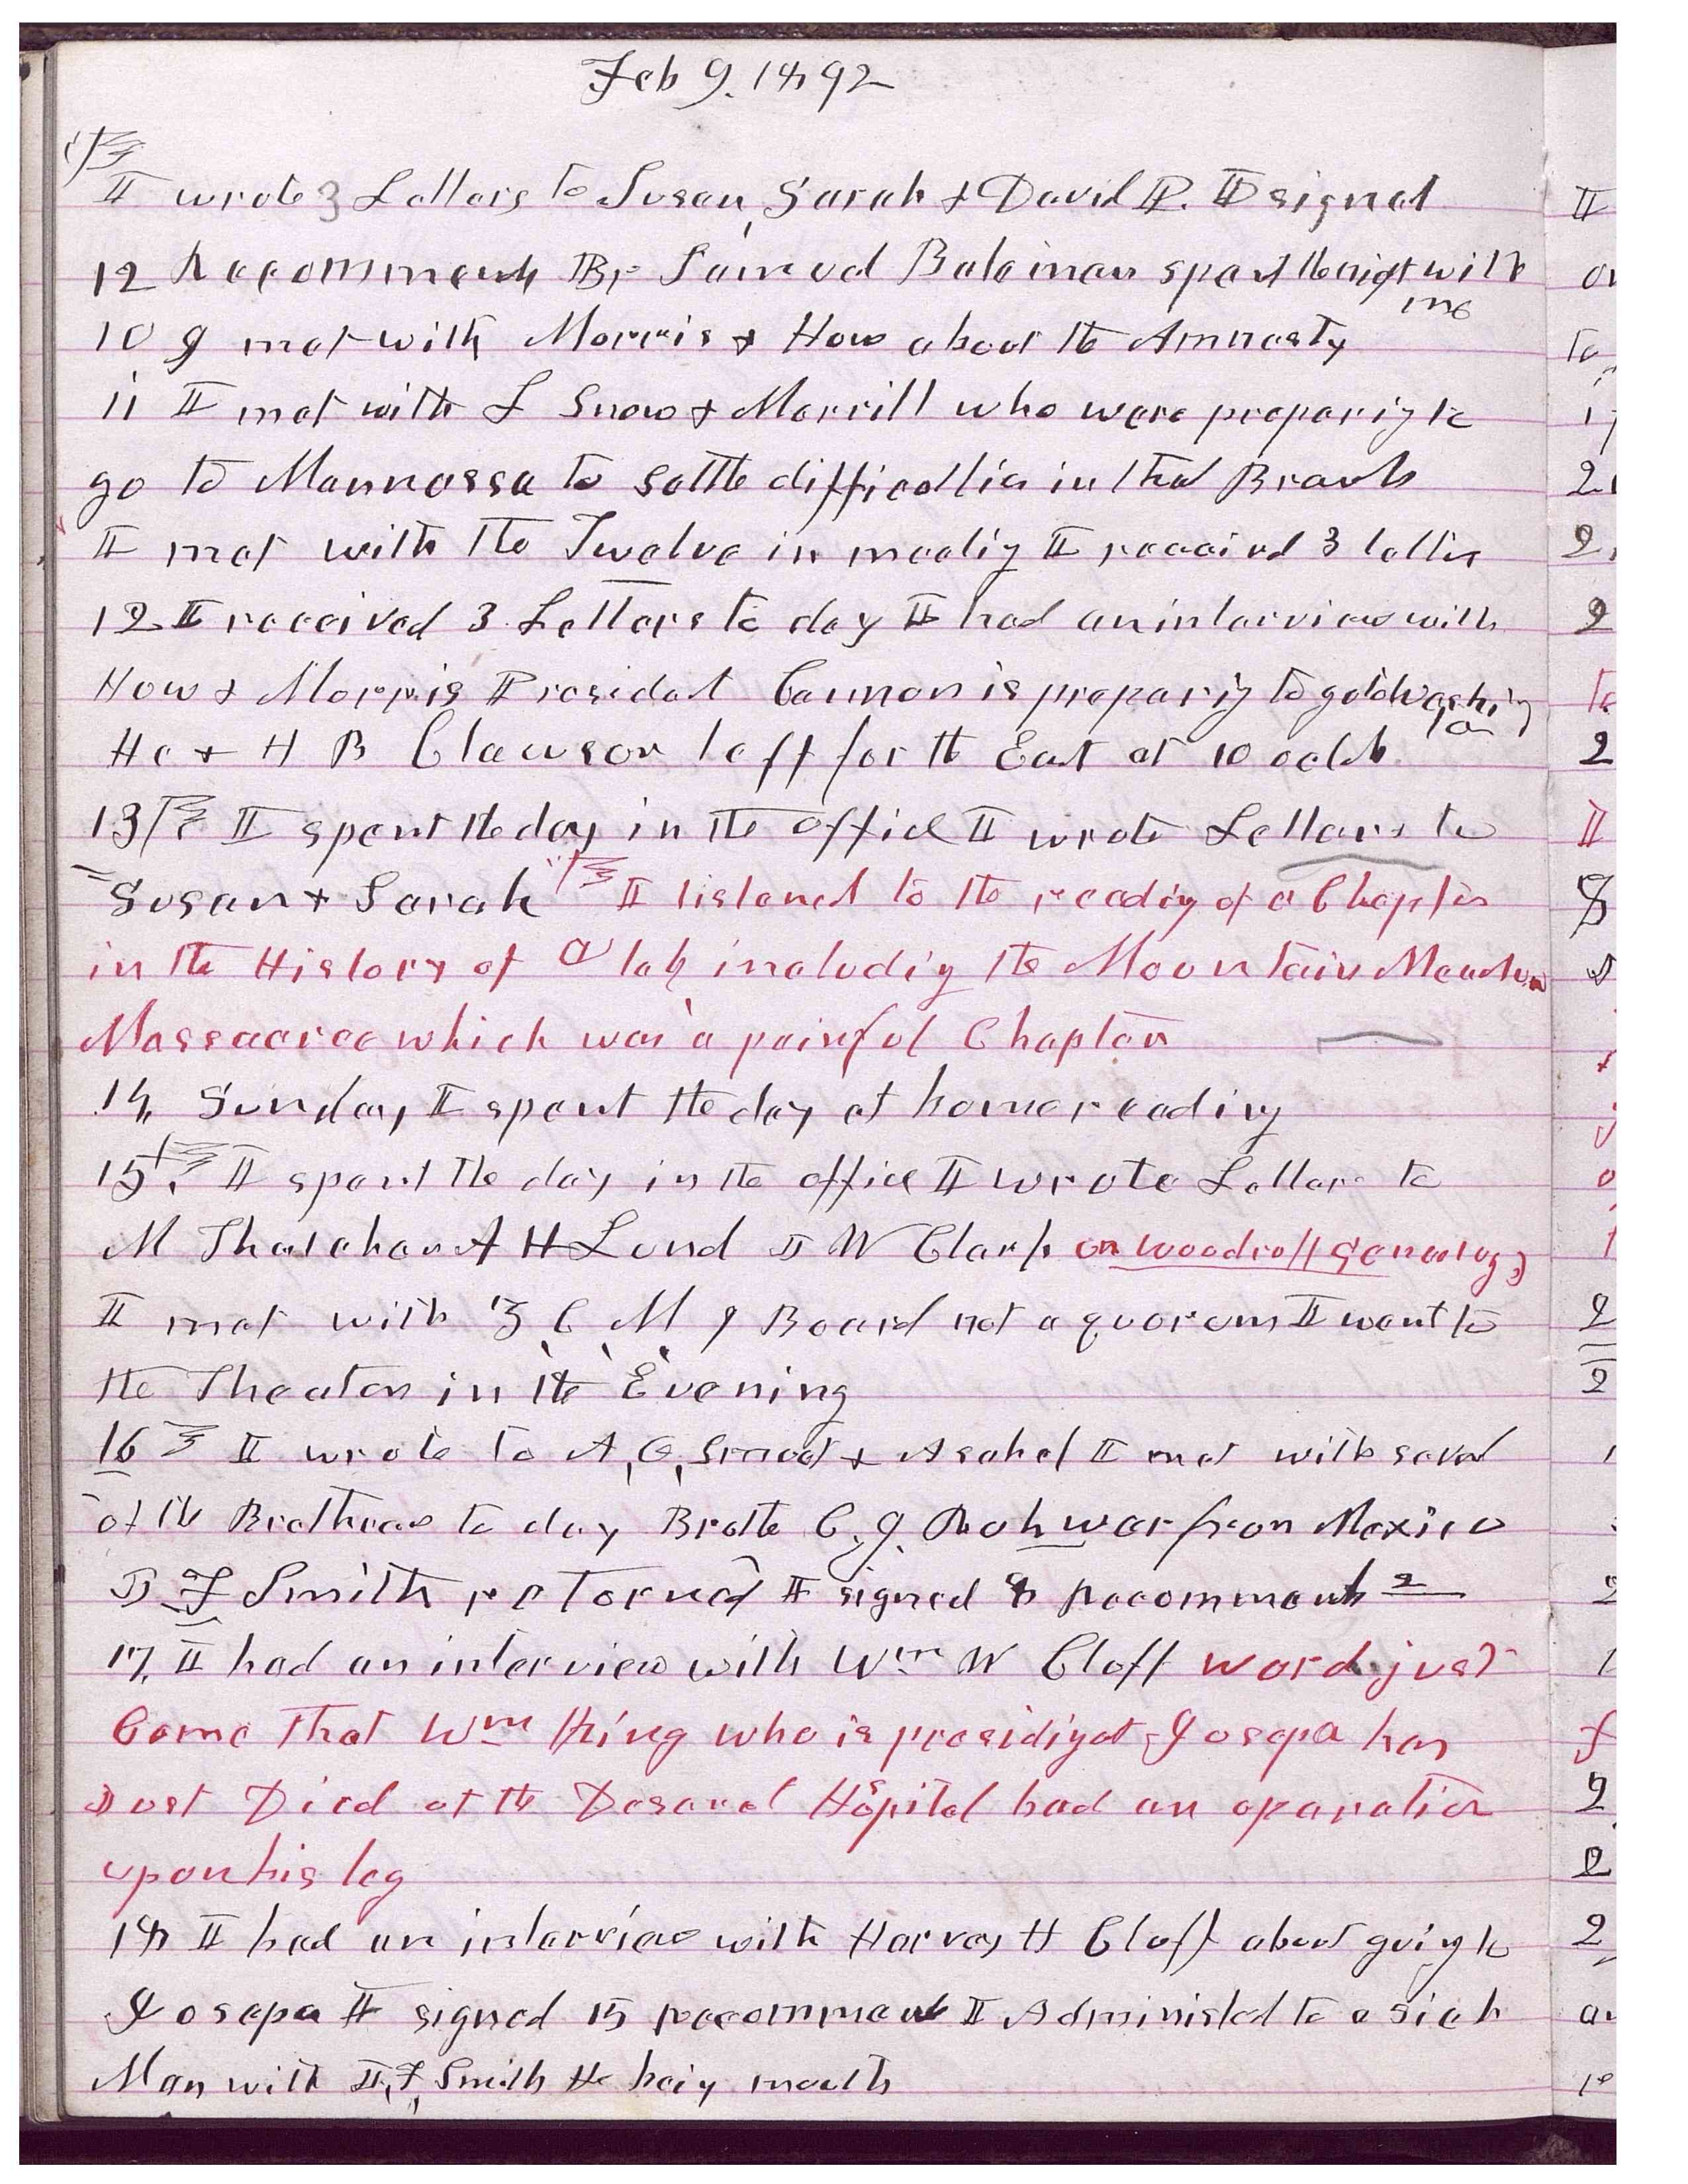 Feb 9. 1892
I wrote 3 Letters to Susan, Sarah & David P. I signed
12 Recommends Br Samuel Bateman spent the night with
me
10 I met with Morris & How about the Amnesty
11 I met with L Snow & Merrill who were preparig to
go to Mannassa to settle difficulties in that Branch
I met with the Twelve in meetig I received 3 letters
12 I received 3 Letters to day I had an interview with
How & Morris President Cannon is preparig to go to Washing
ton
He & H B Clawson left for the East at 10 oclok
13 I spent the day in the office I wrote Letters to
Susan & Sarah I listened to the readig of a Chapter
in the History of Utah includig the Mountain Meadow
Massaacree which was a painful Chapter
14, Sunday I spent the day at home readig
15. I spent the day in the office I wrote Letters to
M Thatcher A H Lund J W Clark on Woodruff Genealogy
I met with Z, C, M, I Board not a quorum I went to
the Theater in the Evening
16 I wrote to A, O, Smoot & Asahel I met with several
of the Brethren to day Brother from Mexico
J F Smith returned I signed 8 Recommends
17, I had an interview with Wm W Cluff word just
Came that Wm King who is presidig at Josepa has
Just Died at the Deseret Hospital had an operation
upon his leg
18 I had an interview with Harvey H Cluff about going to
Josepa I signed 15 recommends I Administed to a sick
Man with J, F, Smith He beig mouth